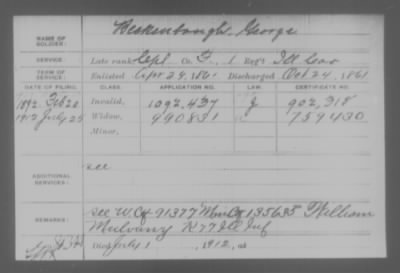 NAME OF SOLDIER: Beckenbaugh, George
SERVICE: Late rank Cpl Co. G, 1 Reg't Ill Cav
TERM OF SERVICE: Enlisted Apr 29, 1861 Discharged Oct 24, 1861
DATE OF FILING. CLASS. APPLICATION NO. LAW. CERTIFICATE NO.
1892 Feb 20 Invalid, 1092,437 J 902,318
1912 July 25 Widow, 990831 759430
Minor,
ADDITIONAL SERVICES: see
REMARKS: see W Ctf 91377 Min Ctf 135635 William
Mulvany K 77 Ill Inf
Died July 1, 1912, at